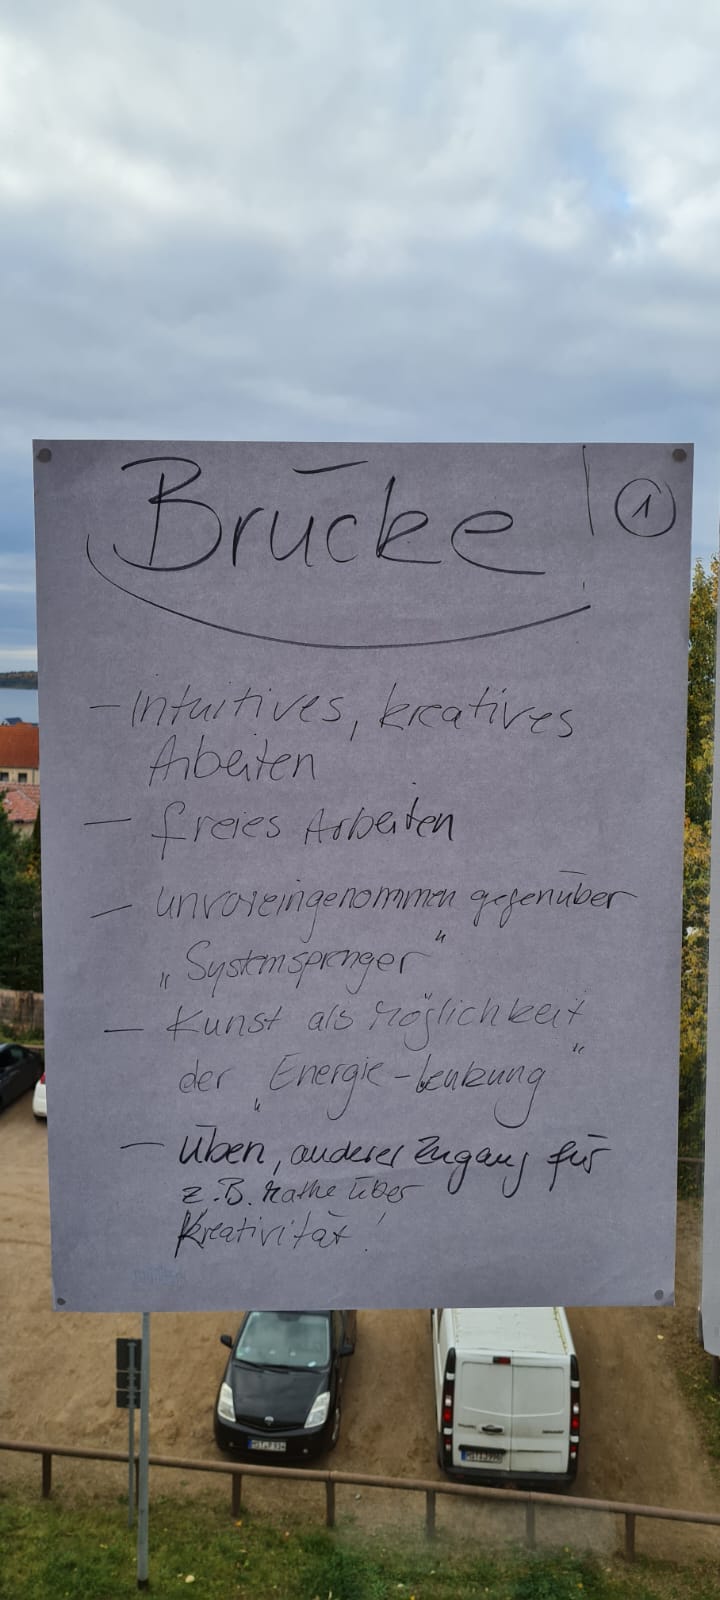 Brücke! 1
– Intuitives, kreatives
Arbeiten
– freies Arbeiten
– unvoreingenommen gegenüber
„Systemsprenger“
– Kunst als Möglichkeit
der „Energie-Lenkung“
– Üben, anderer Zugang für
z.B. Mathe über
Kreativität!